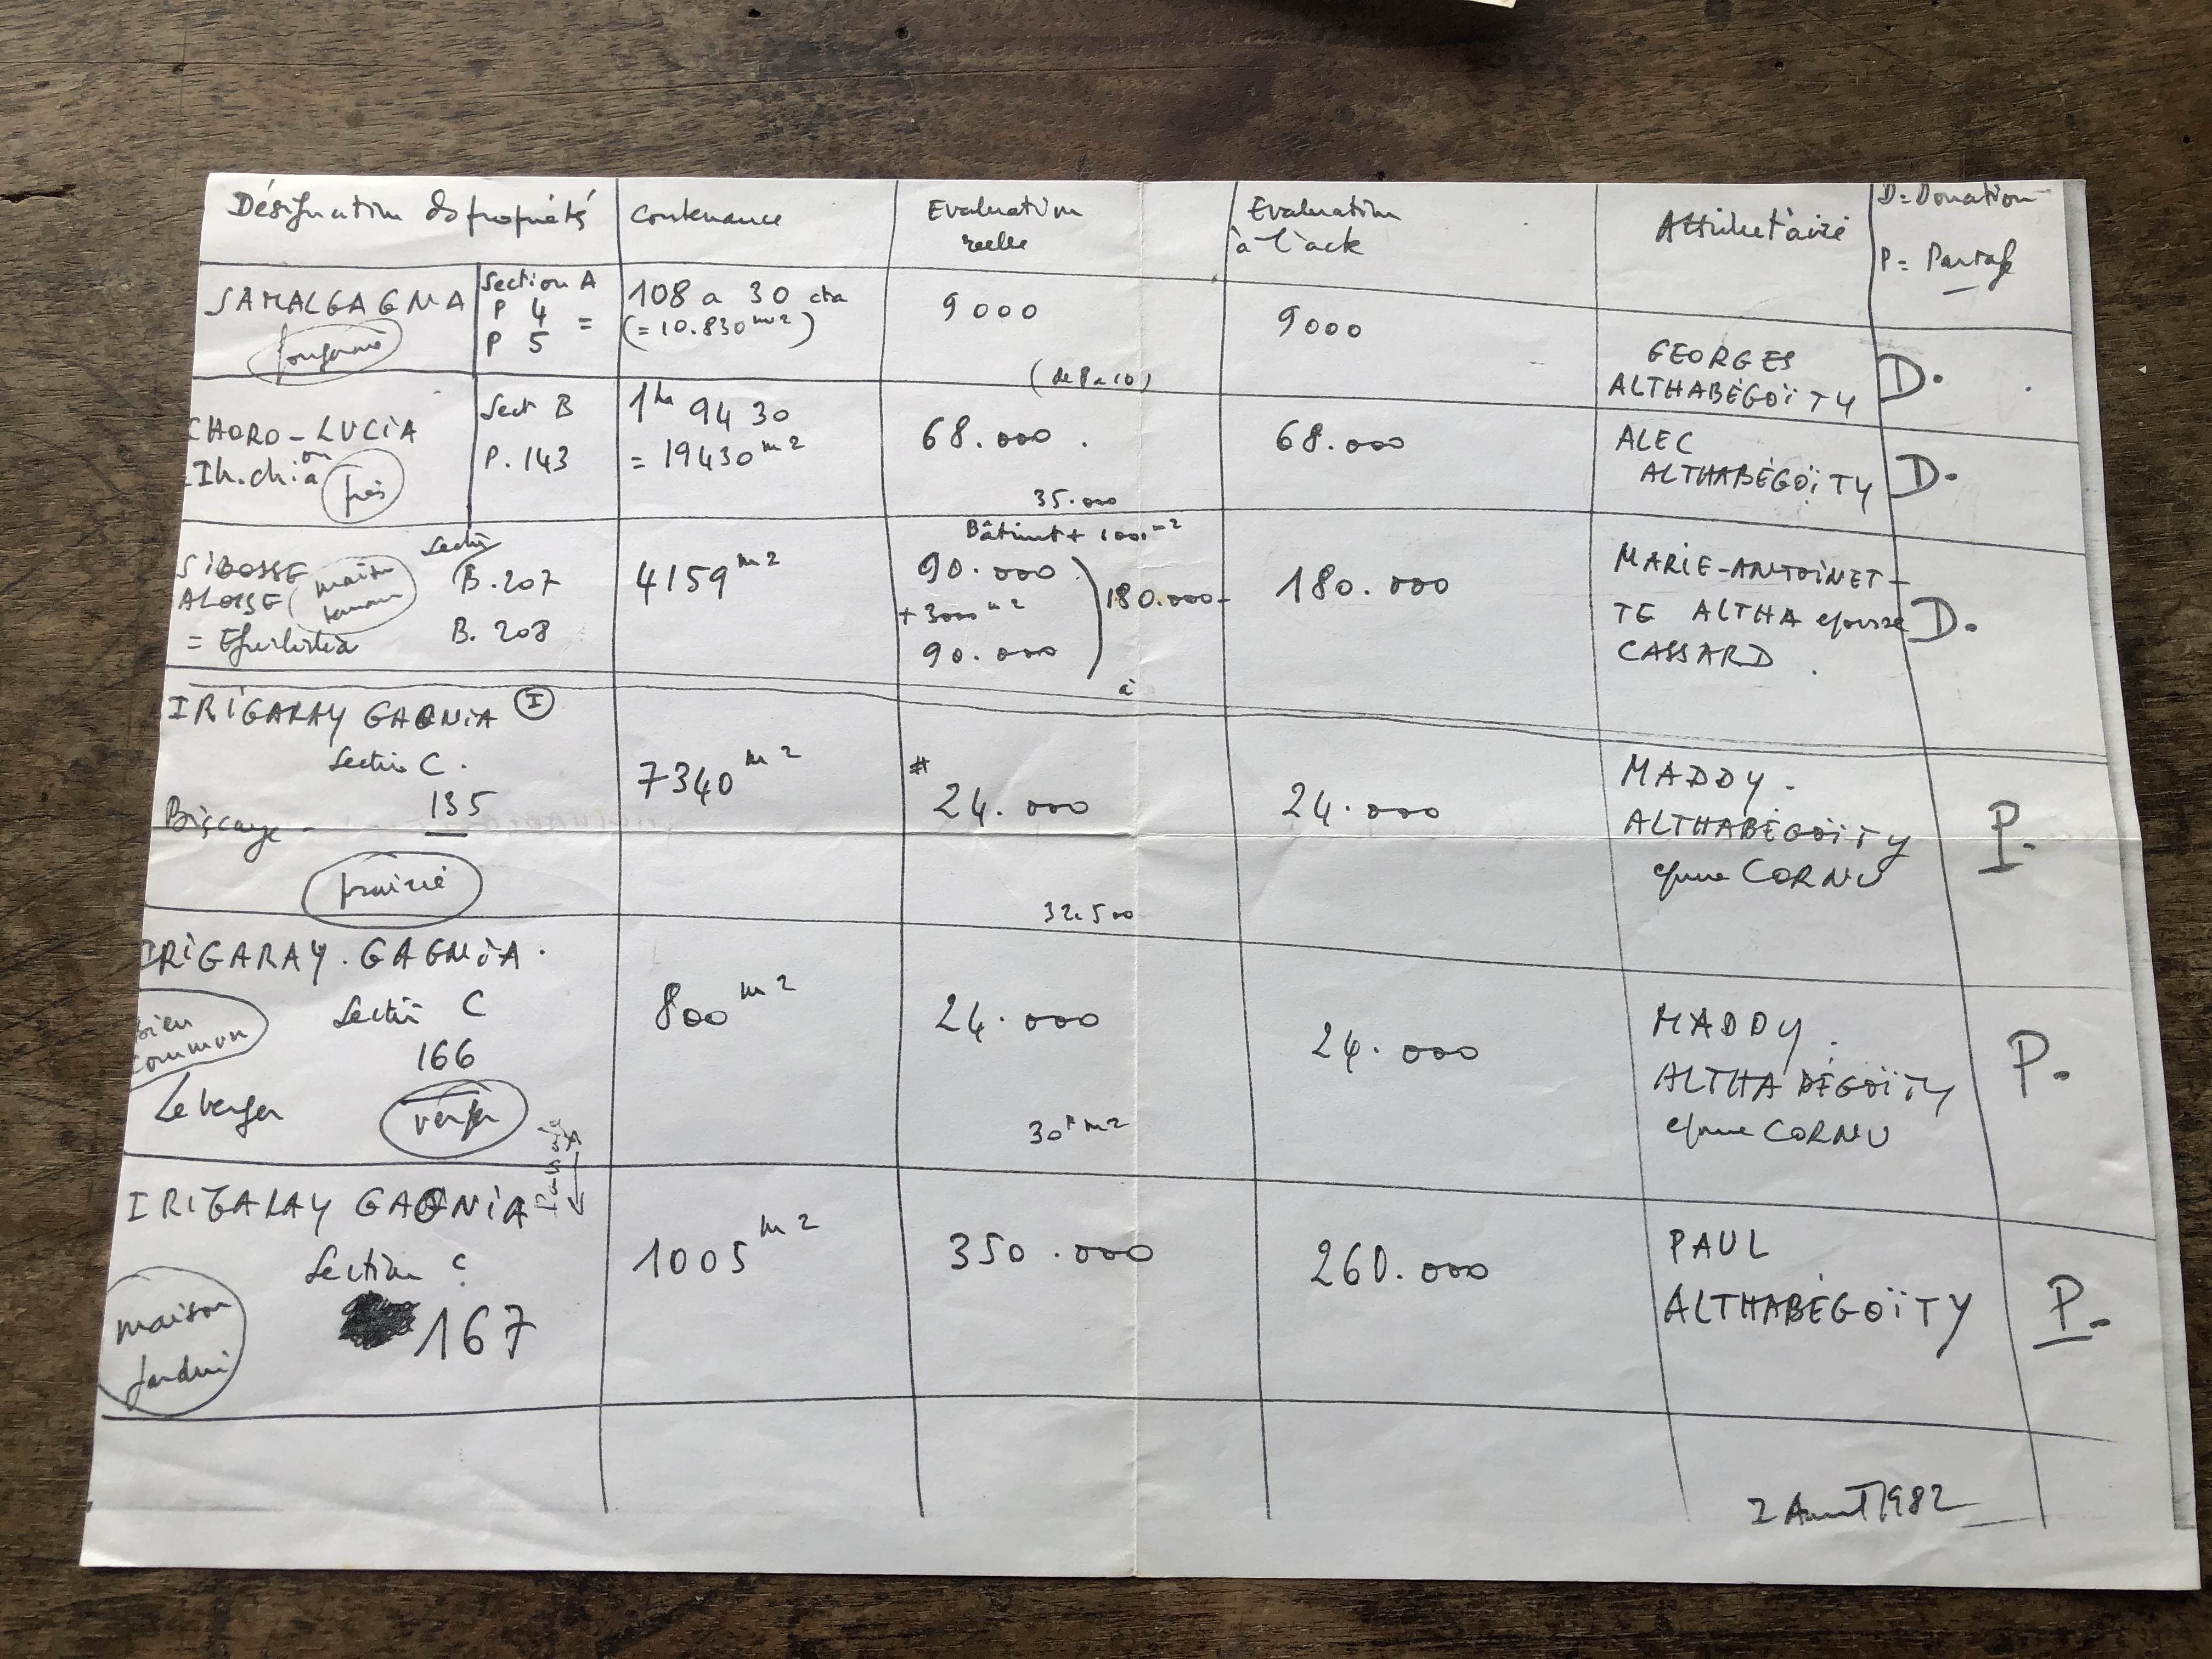 Désignation ds propriétés
Contenance
Evaluation
reelle
Evaluation
à l'acte
Attributaire
D=Donation
P= Partage
SAMALGAGNA
fougeraie
Section A
P 4 =
P 5
108 a 30 cta
(= 10.830 m2)
9000
9000
GEORGES
ALTHABÉGOÏTY
D.
CHORO-LUCIA
ou
prés
Sect B
P. 143
1ha 94 30
= 19430 m2
(de 8 a 10)
68.000.
68.000
ALEC
ALTHABÉGOÏTY
D.
SIBOSSE
maison
Section
B. 207
B. 208
4159 m2
35.000
Bâtiment + 1000 m2
90.000
+ 3000 m2
90.000
180.000-
180.000
MARIE-ANTOINET-
TE ALTHA epouse
CASSARD.
D.
IRIGARAY GAGNIA I
Section C.
135
Biscaye -
prairie
7340 m2
à
# 24.000
24.000
MADDY.
ALTHABÉGOÏTY
epouse CORNU
P.
IRIGARAY. GAGNIA.
Bien
commun
Section C
166
Le verger
verger
800 m2
32.500
24.000
24.000
MADDY.
ALTHABÉGOÏTY
epouse CORNU
P.
IRIGARAY GAGNIA
Section C
167
maison
jardin
1005 m2
30 F m2
350.000
260.000
PAUL
ALTHABÉGOÏTY
P.
1982